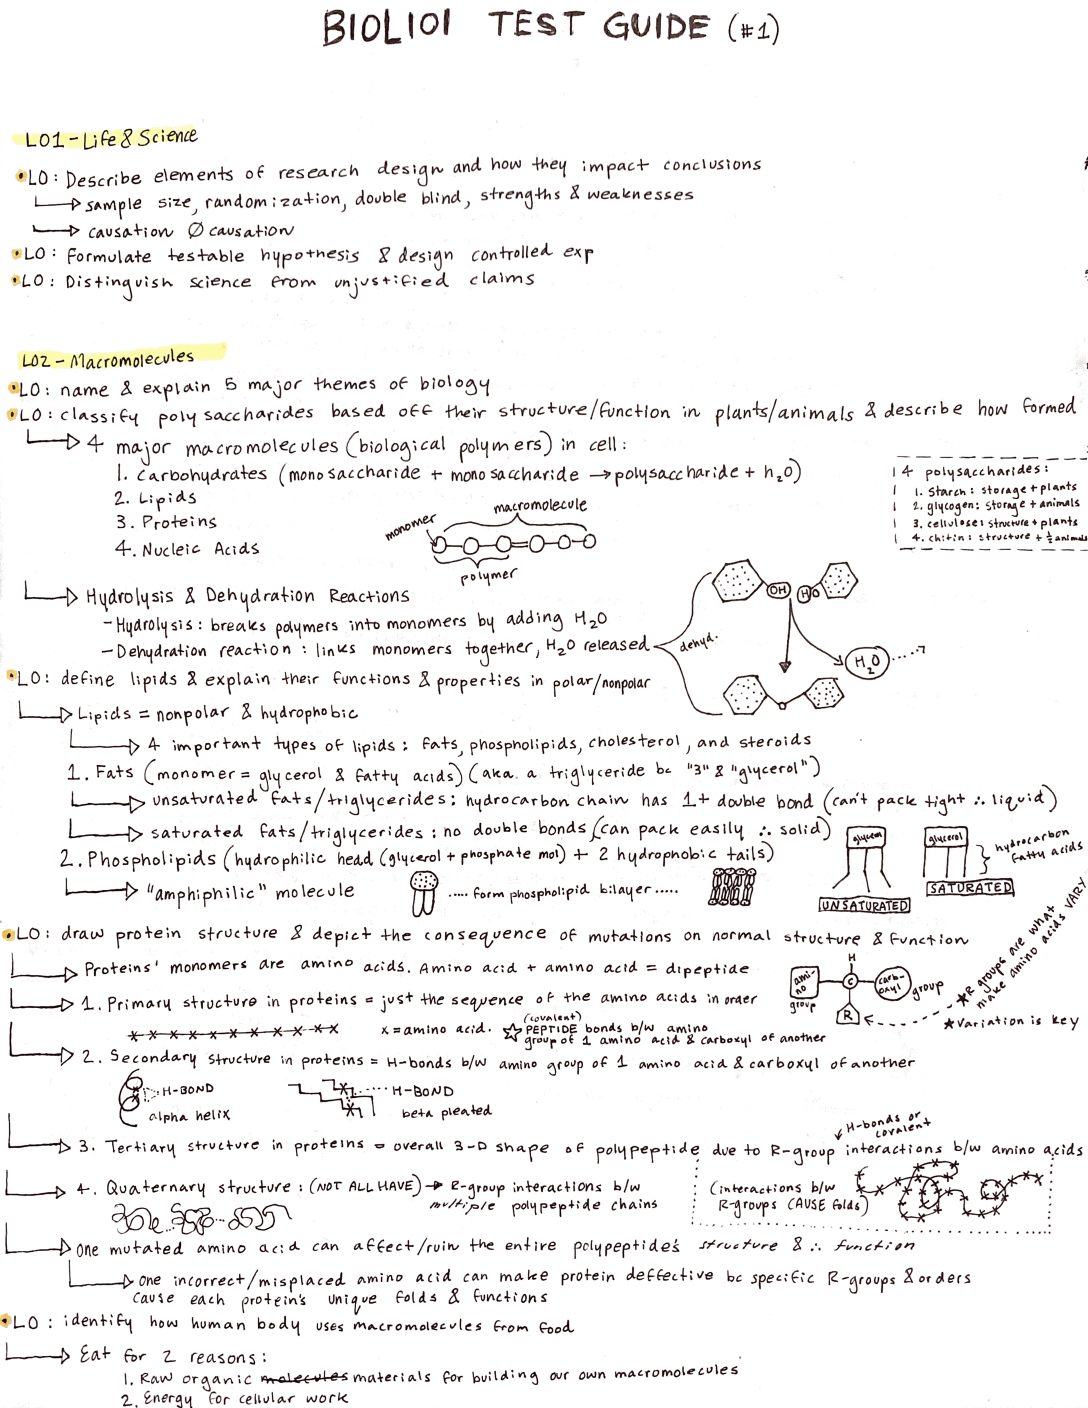 BIOL101 TEST GUIDE (#1)
LO1 - Life & Science
LO: Describe elements of research design and how they impact conclusions
sample size, randomization, double blind, strengths & weaknesses
causation Ø causation
LO: Formulate testable hypothesis & design controlled exp
LO: Distinguish science from unjustified claims
LO2 - Macromolecules
LO: name & explain 5 major themes of biology
LO: classify polysaccharides based off their structure/function in plants/animals & describe how formed
4 major macromolecules (biological polymers) in cell:
1. Carbohydrates (monosaccharide + monosaccharide → polysaccharide + h₂O)
2. Lipids
3. Proteins
4. Nucleic Acids
monomer
macromolecule
polymer
4 polysaccharides:
1. Starch: storage + plants
2. glycogen: storage + animals
3. cellulose: structure + plants
4. chitin: structure + ½ animals
Hydrolysis & Dehydration Reactions
- Hydrolysis: breaks polymers into monomers by adding H₂O
- Dehydration reaction: links monomers together, H₂O released
dehyd.
OH
H₂O
LO: define lipids & explain their functions & properties in polar/nonpolar
Lipids = nonpolar & hydrophobic
4 important types of lipids: fats, phospholipids, cholesterol, and steroids
1. Fats (monomer = glycerol & fatty acids) (aka. a triglyceride bc "3" & "glycerol")
unsaturated fats/triglycerides: hydrocarbon chain has 1+ double bond (can't pack tight ∴ liquid)
saturated fats/triglycerides: no double bonds (can pack easily ∴ solid)
2. Phospholipids (hydrophilic head (glycerol + phosphate mol) + 2 hydrophobic tails)
"amphiphilic" molecule
..... form phospholipid bilayer .....
glycerol
UNSATURATED
glycerol
SATURATED
hydrocarbon
fatty acids
LO: draw protein structure & depict the consequence of mutations on normal structure & function
Proteins' monomers are amino acids. Amino acid + amino acid = dipeptide
H
ami-
no
group
C
carb-
oxyl
group
R
*R groups are what
make amino acids VARY
*Variation is key
1. Primary structure in proteins = just the sequence of the amino acids in order
x = amino acid.
(covalent)
☆ PEPTIDE bonds b/w amino
group of 1 amino acid & carboxyl of another
2. Secondary structure in proteins = H-bonds b/w amino group of 1 amino acid & carboxyl of another
H-BOND
alpha helix
H-BOND
beta pleated
H-bonds or
covalent
3. Tertiary structure in proteins = overall 3-D shape of polypeptide due to R-group interactions b/w amino acids
(interactions b/w
R-groups CAUSE folds)
4. Quaternary structure: (NOT ALL HAVE) → R-group interactions b/w
multiple polypeptide chains
One mutated amino acid can affect/ruin the entire polypeptide's structure & ∴ function
one incorrect/misplaced amino acid can make protein deffective bc specific R-groups & orders
cause each protein's unique folds & functions
LO: identify how human body uses macromolecules from food
Eat for 2 reasons:
1. Raw organic molecules materials for building our own macromolecules
2. Energy for cellular work